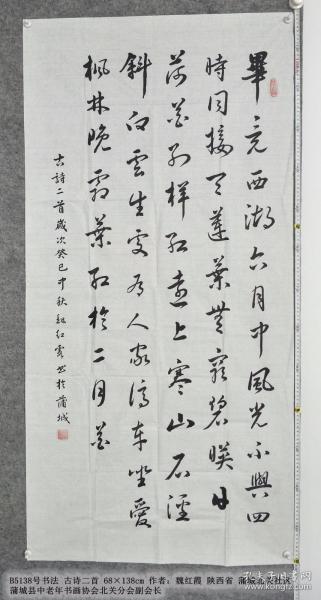 畢竟西湖六月中風光不與四
時同接天蓮葉無窮碧暎日
荷花別樣紅遠上寒山石徑
斜白雲生處有人家停車坐愛
楓林晚霜葉紅於二月花
古詩二首歲次癸巳中秋魏紅霞书於蒲城
B5138号书法 古诗二首 68×138cm 作者：魏红霞 陕西省 蒲城
蒲城县中老年书画协会北关分会副会长